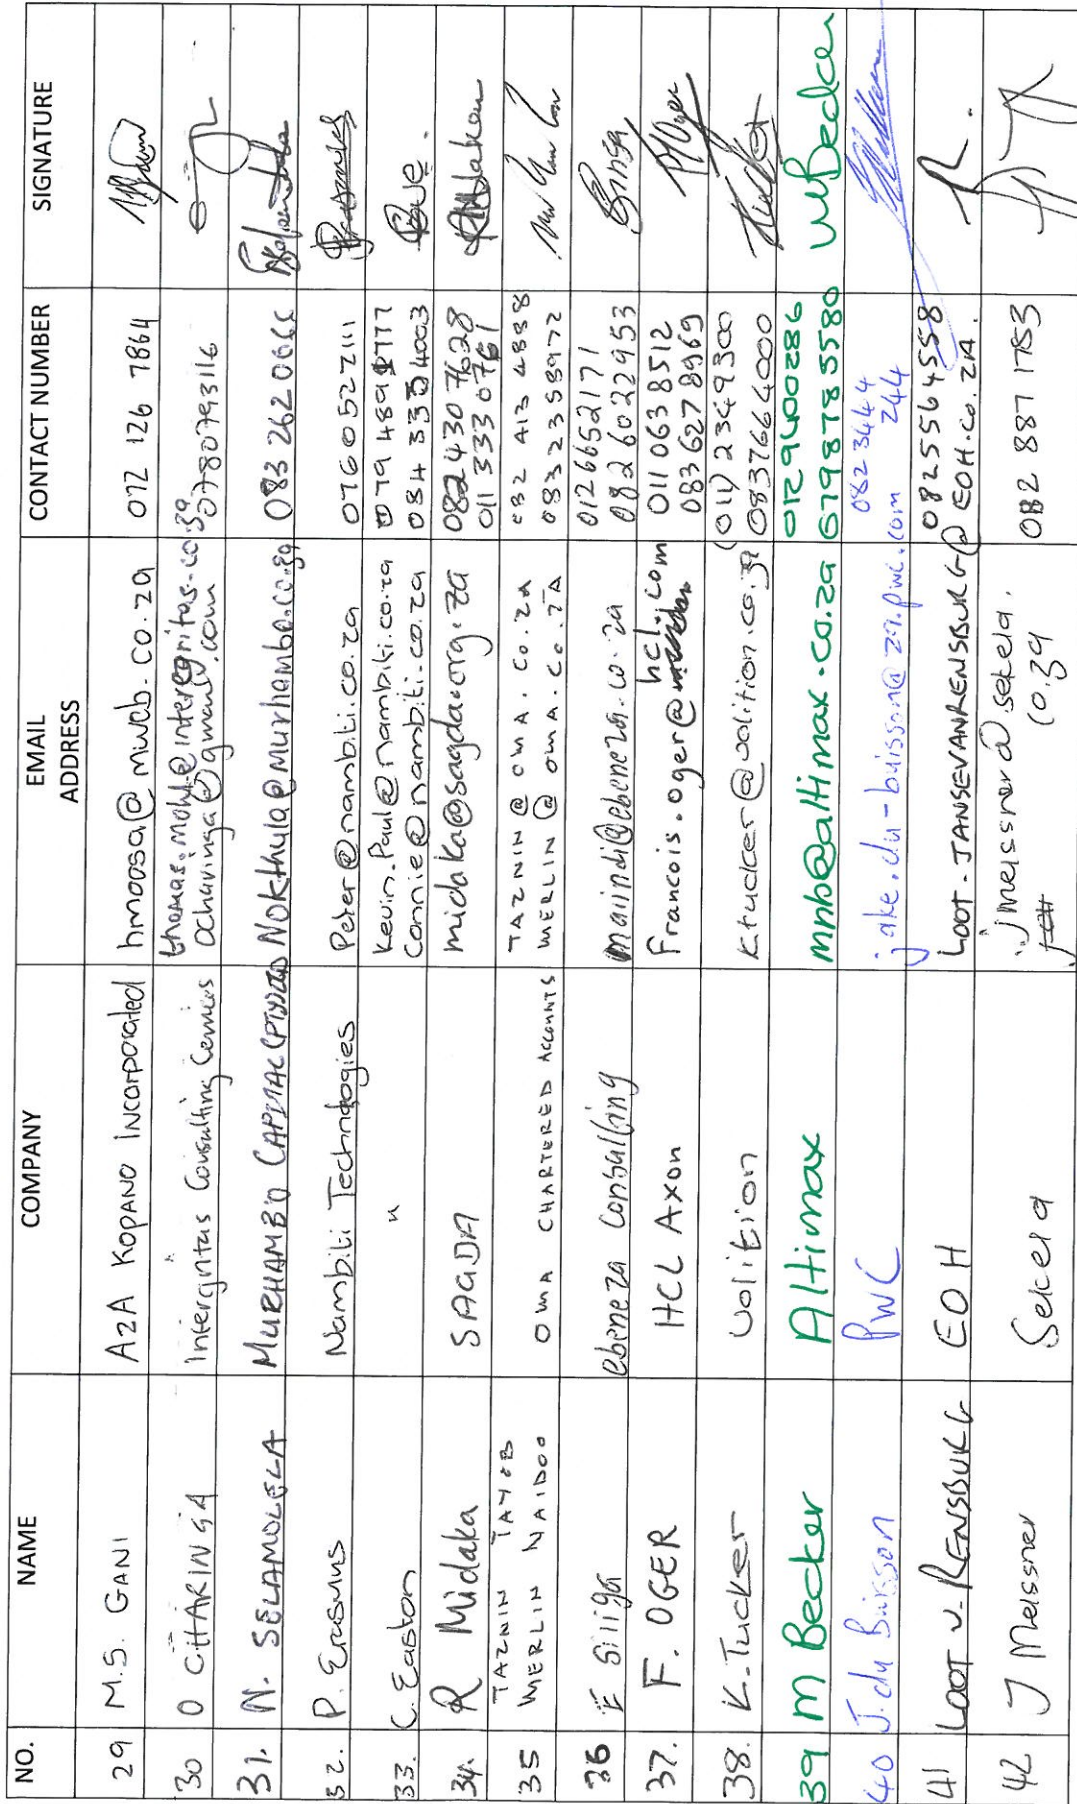 NO. NAME COMPANY EMAIL ADDRESS CONTACT NUMBER SIGNATURE
29 M.S. GANI A2A KOPANO INCORPORATED hmoosa@mweb.co.za 072 126 7864
30 O CHARINGA Integritas Consulting Services
ocharinga@gmail.com 0780793116
31. N. SELAMOLELA MURHAMBO CAPITAL Nokthula@Murhambo.co.za 083 262 0066
32. P. Erasmus Nambiti Technologies Peter@nambiti.co.za 0760527211
33. C. Easton " Kevin.Paul@nambiti.co.za
Connie@nambiti.co.za
34. R Midaka SAGDA 0824307628
011 333 0761
35 TAZNIN TAYOB OMA CHARTERED ACCOUNTS TAZNIN @ OMA.CO.ZA 032 413 4888
MERLIN NAIDOO MERLIN @ OMA.CO.ZA 0832358972
36 Ebeneza Consulting 0126652171
0826022953
37. F. OGER HCL Axon Francois.oger@hcl.com 0110638512
0836278969
38. K. Tucker Volition Ktucker@volition.co.za (011) 2349300
0837664000
39 M Becker Altimax mnb@altimax.co.za 0129400286
0798785580
40 J. du Buisson PWC jake.du-buisson@za.pwc.com 082 3444
244
41 LOOT v. RENSBURG EOH 0825564558
LOOT-JANSEVANRENSBURG@EOH.CO.ZA.
42 J Meissner Sekela jmeissner@sekela.
co.za
082 887 1753